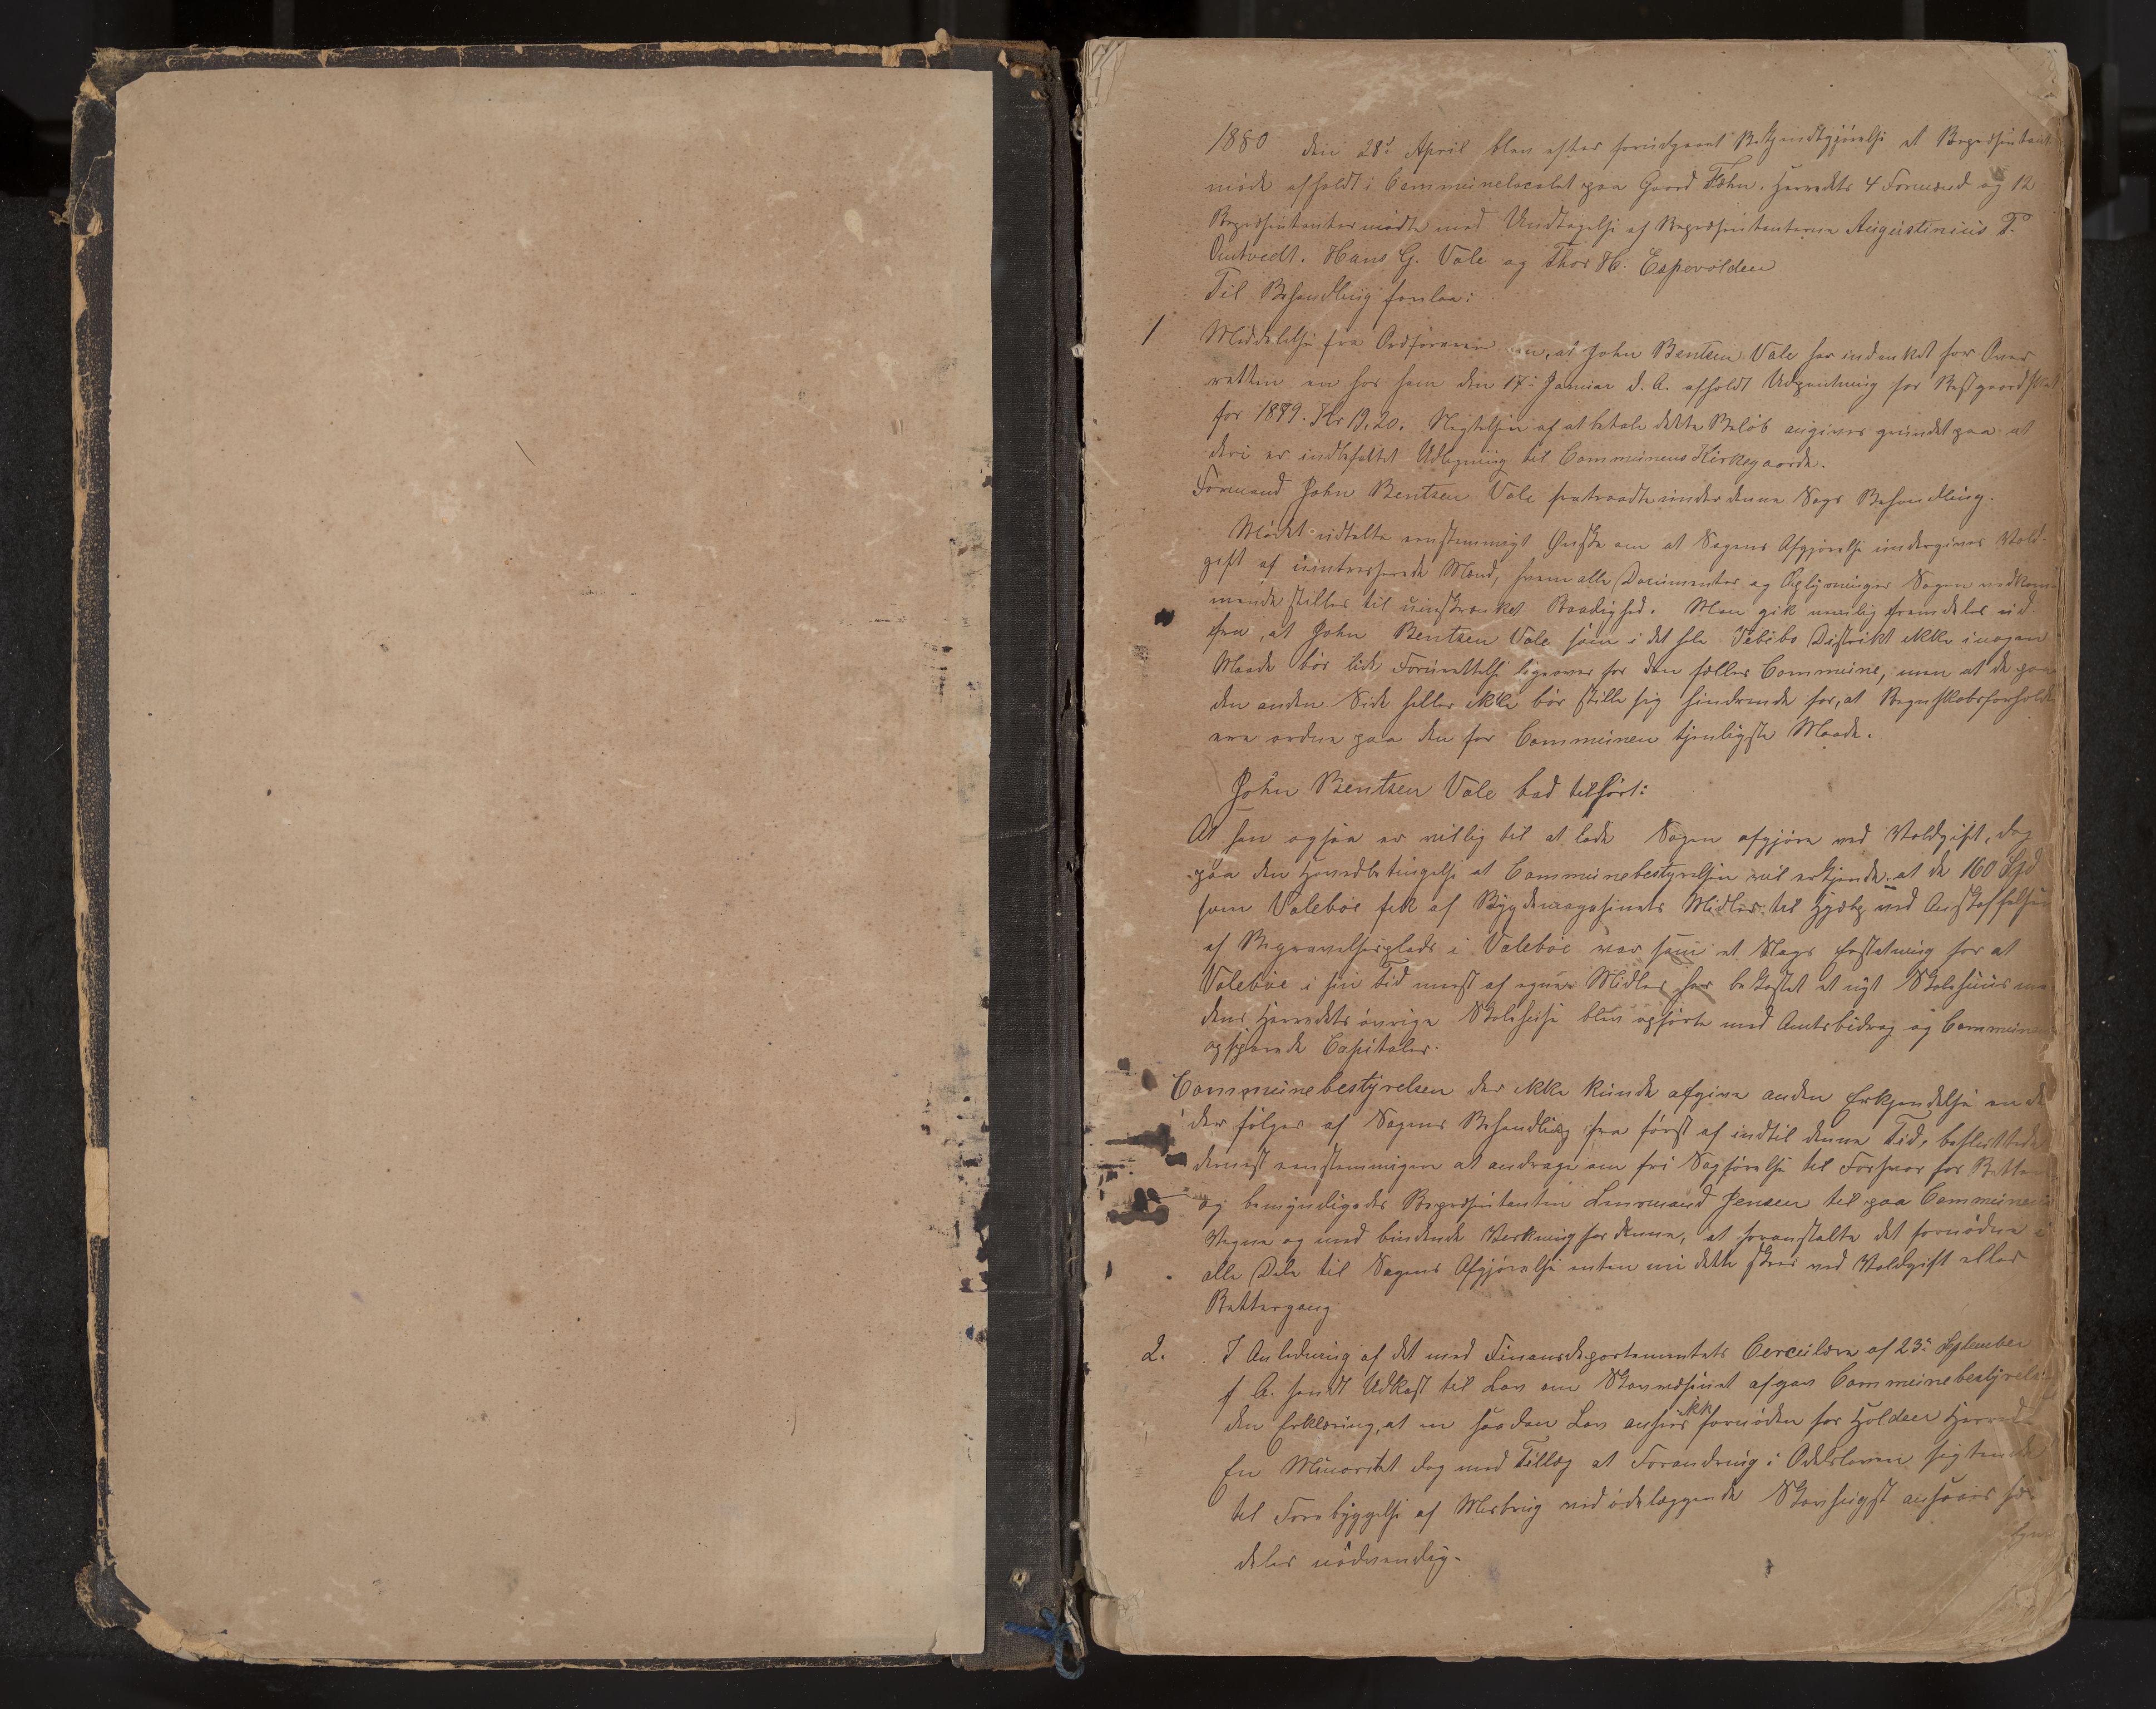 1880 den 28d April blev efter forudgaaet Bekjendtgjörelse et Repræsentant
möde afholdt i Communelocalet paa Gaard Tæhn. Herredets 4 Formænd og 12
Repræsentanter mödte med Undtagelse af Repræsentanterne Augustinius T.
Omtvedt, Hans G. Vale og Thor H. Espevolden
Til Behandling forelaa:
1 Meddelelse fra Ordföreren om, at John Bentsen Vale har indanket for Over
retten en hos ham den 17de Januar d. A. afholdt Udpantning for Restgaardskat
for 1879. Kr 19,20. Negtelsen af at betale dette Belöb angives grundet paa at
deri er indbefattet Udligning til Communens Kirkegaarde.
Formand John Bentsen Vale fratraadte under denne Sags Behandling.
Mödet udtalte eenstemmigt Önske om at Sagens Afgjörelse undergives Vold-
gift af uinteresserede Mænd, hvem alle Documenter og Oplysninger Sagen vedkom-
mende stilles til uindskrænket Raadighed. Man gik nemlig fremdeles ud
fra, at John Bentsen Vale som i det hele Valebö Distrikt ikke i nogen
Maade bör lide Forurettelse ligeover for den fælles Commune, men at de paa
den anden Side heller ikke bör stille sig hindrende for, at Regnskabsforholde
ne ordnes paa den for Communen tjenligste Maade.
John Bentsen Vale bad tilfört:
At han ogsaa er villig til at lade Sagen afgjöre ved Voldgift, dog
paa den Hovedbetingelse at Communebestyrelsen vil erkjende at de 160 Spd
som Valeböe fik af Bygdemagasinets Midler til Hjælp ved Anskaffelsen
af Begravelsesplads i Valeböe var som et Slags Erstatning for at
Valeböe i sin Tid mest af egne Midler har bekostet et nyt Skolehuus me
dens Herredets övrige Skolehuse blev opförte med Amtsbidrag og Communens
opsparede Capitaler.
Communebestyrelsen der ikke kunde afgive anden Erkjendelse en de
der fölger af Sagens Behandling fra först af indtil denne Tid, besluttede
dernæst eenstemmigen at andrage om fri Sagförelse til Forsvar for Retten
og bemyndigedes Repræsentanten Lensmand Jensen til paa Communens
Vegne og med bindende Virkning for denne, at foranstalte det fornödne i
alle Dele til Sagens Afgjörelse enten nu dette skeer ved Voldgift eller
Rettergang
2. I Anledning af det med Finansdepartementets Circulære af 23de September
f. A. sendt Udkast til Lov om Skovvæsenet afgav Communebestyrelsen
den Erklæring, at en saadan Lov ansees ikke fornöden for Holden Herred
En Minoritet dog med Tillæg at Forandring i Odelsloven sigtende
til Forebyggelse af Misbrug ved ödelæggende Skovhugst ansaaes
deles nödvendig.